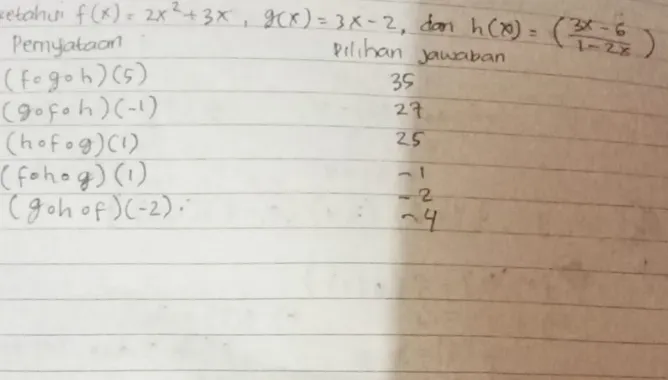 ketahui f(x) = 2x² + 3x, g(x) = 3x - 2, dan h(x) = (3x - 6 / 1 - 2x)
Pernyataan Pilihan jawaban
(fogoh)(5) 35
(gofoh)(-1) 27
(hofog)(1) 25
(fohog)(1) -1
(gohof)(-2). -2
-4